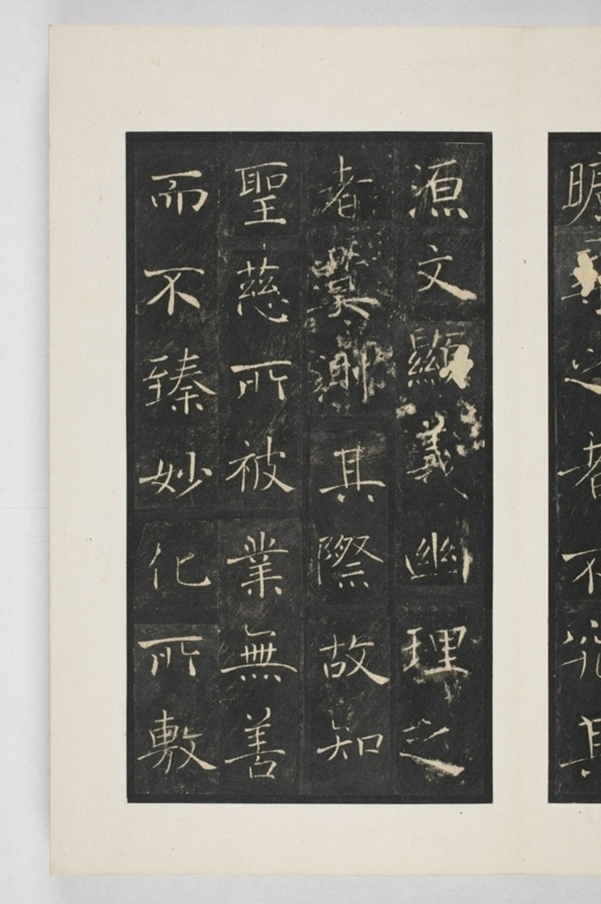 曠尋之者不究其
源文顯義幽理之
者莫測其際故知
聖慈所被業無善
而不臻妙化所敷